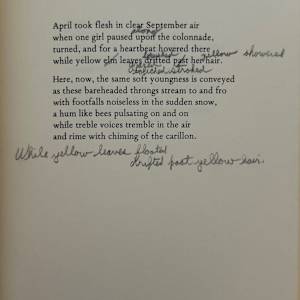 April took flesh in clear September air
along
when one girl paused upon the colonnade,
turned, and for a heartbeat hovered there
yellow showered
while yellow elm leaves drifted past her hair.
stroked
Here, now, the same soft youngness is conveyed
as these bareheaded throngs stream to and fro
with footfalls noiseless in the sudden snow,
a hum like bees pulsating on and on
while treble voices tremble in the air
and rime with chiming of the carillon.
While yellow leaves floated
drifted past yellow hair.